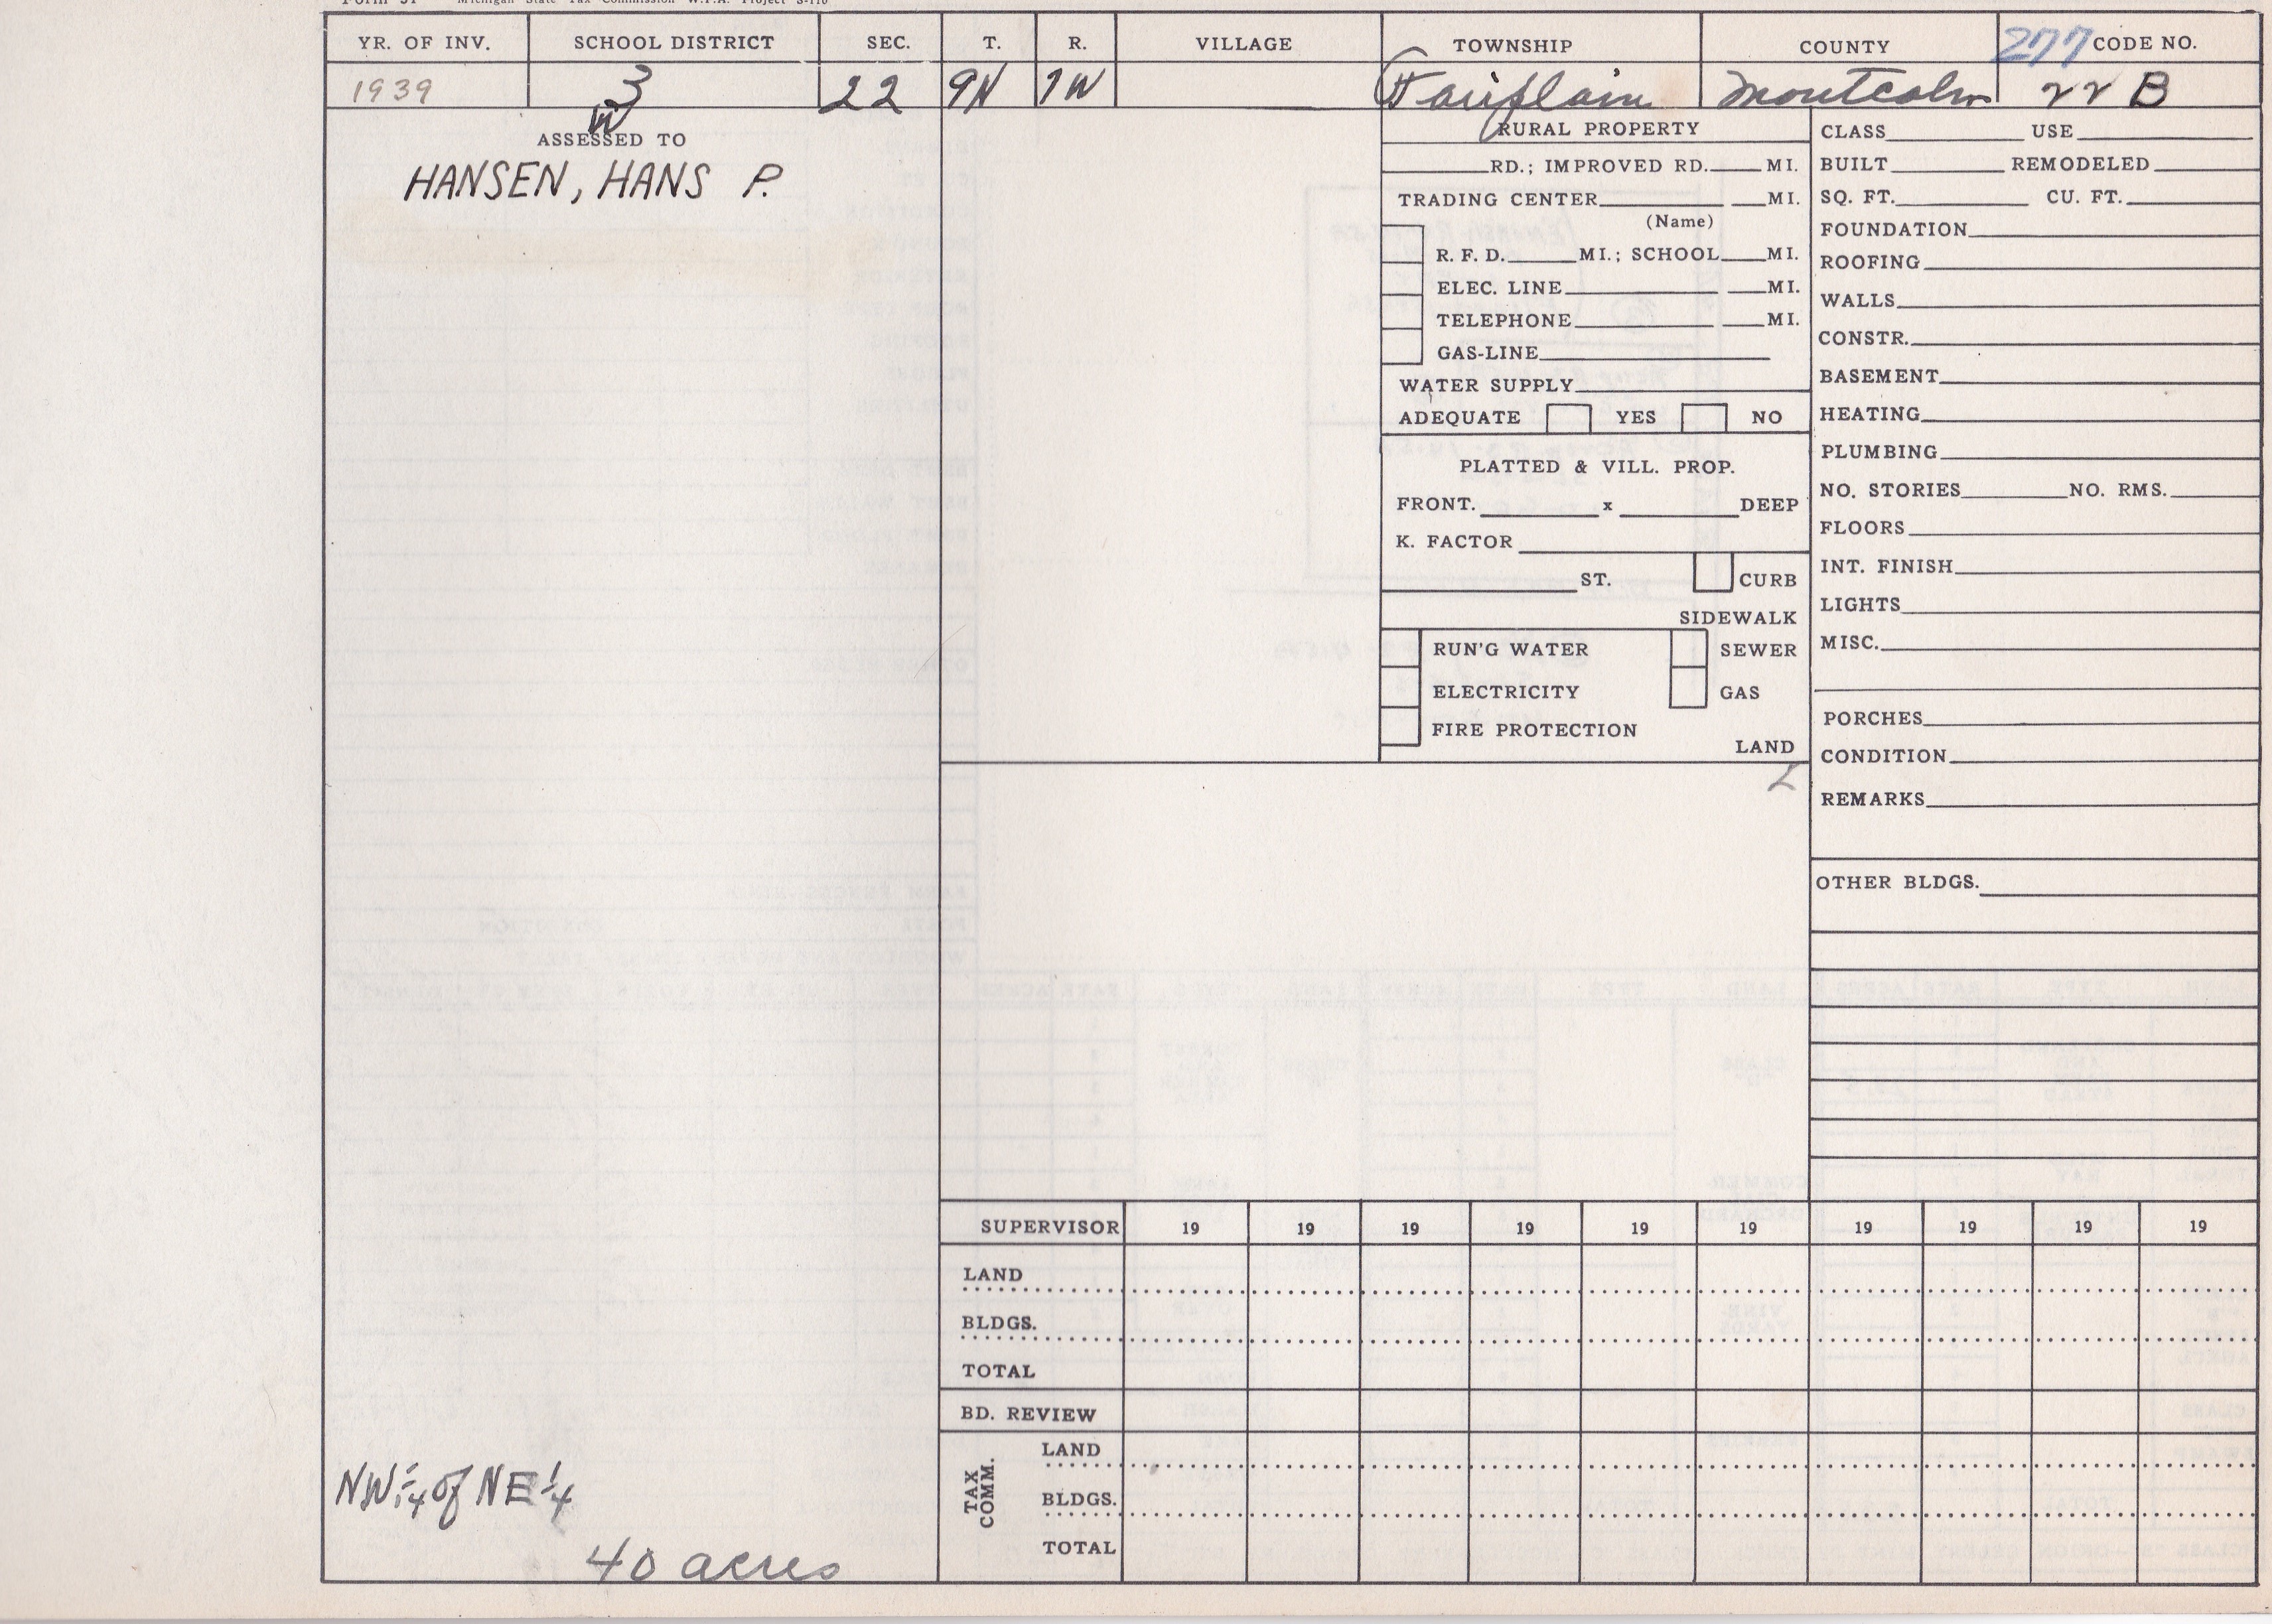 Form 31 Michigan State Tax Commission W.P.A. Project S-170
YR. OF INV. SCHOOL DISTRICT SEC. T. R. VILLAGE TOWNSHIP COUNTY 277 CODE NO.
1939 3 22 9N 7W Fairplain Montcalm 22 B
W
ASSESSED TO
HANSEN, HANS P.
NW 1/4 of NE 1/4
40 acres
RURAL PROPERTY
RD.; IMPROVED RD. MI.
TRADING CENTER MI.
(Name)
R. F. D. MI.; SCHOOL MI.
ELEC. LINE MI.
TELEPHONE MI.
GAS-LINE
WATER SUPPLY
ADEQUATE YES NO
PLATTED & VILL. PROP.
FRONT. x DEEP
K. FACTOR
ST. CURB
SIDEWALK
RUN'G WATER SEWER
ELECTRICITY GAS
FIRE PROTECTION
LAND
L
CLASS USE
BUILT REMODELED
SQ. FT. CU. FT.
FOUNDATION
ROOFING
WALLS
CONSTR.
BASEMENT
HEATING
PLUMBING
NO. STORIES NO. RMS.
FLOORS
INT. FINISH
LIGHTS
MISC.
PORCHES
CONDITION
REMARKS
OTHER BLDGS.
SUPERVISOR 19 19 19 19 19 19 19 19 19 19
LAND
BLDGS.
TOTAL
BD. REVIEW
TAX COMM.
LAND
BLDGS.
TOTAL